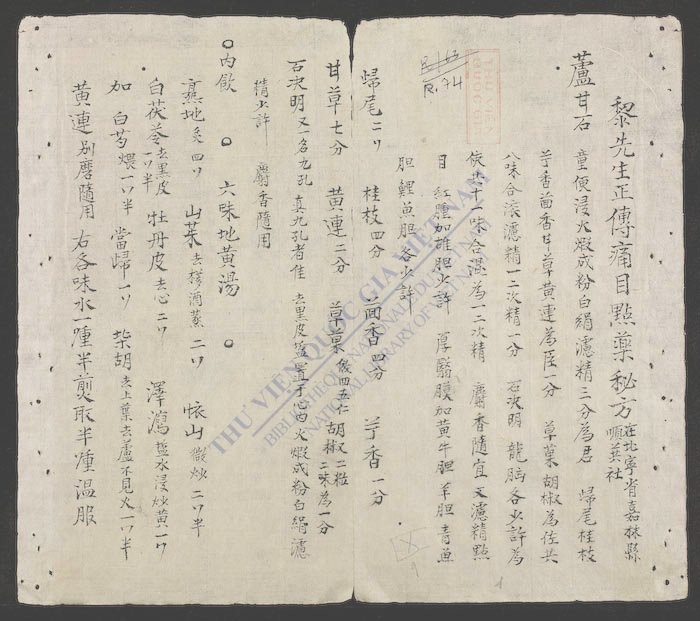 黎先生正傳痛目點藥秘方 在北寧省嘉林縣
社
蘆甘石 童便浸火煆成粉白絹濾精三分為君 歸尾桂枝
芐香茴香甘草黃連為臣一分 草菓胡椒為佐共
八味合滾濾精一二次精一分 石決明 龍腦各少許為
使共十一味合混為一二次精 麝香隨宜又濾精點
目 紅腫加雄胆少許 厚翳膜加黃牛胆羊胆青魚
胆鯉魚胆各少許
R. 163
R. 74
歸尾二〢 桂枝四分 茴香四分 芐香一分
甘草七分 黃連二分 草菓煨四五仁 胡椒二粒 二味為一分
石決明 又一名九孔 真九孔者佳 去黑皮 置于心内火煆成粉白絹濾
精少許 麝香隨用
內飲 六味地黃湯
熟地 四〢 山茱去核酒蒸二〢 懷山 炒二〢半
白茯苓去黑皮一〢半 牡丹皮去心二〢 澤瀉鹽水浸炒黃一〢
加 白芍煨一〢半 當歸一〢 柴胡去上葉去蘆不見火一〢半
黃連別磨隨用 右各味水一鍾半煎取半鍾温服
THƯ VIỆN QUỐC GIA VIỆT NAM
BIBLIOTHÈQUE NATIONALE DU
NATIONAL LIBRARY OF VIETNAM